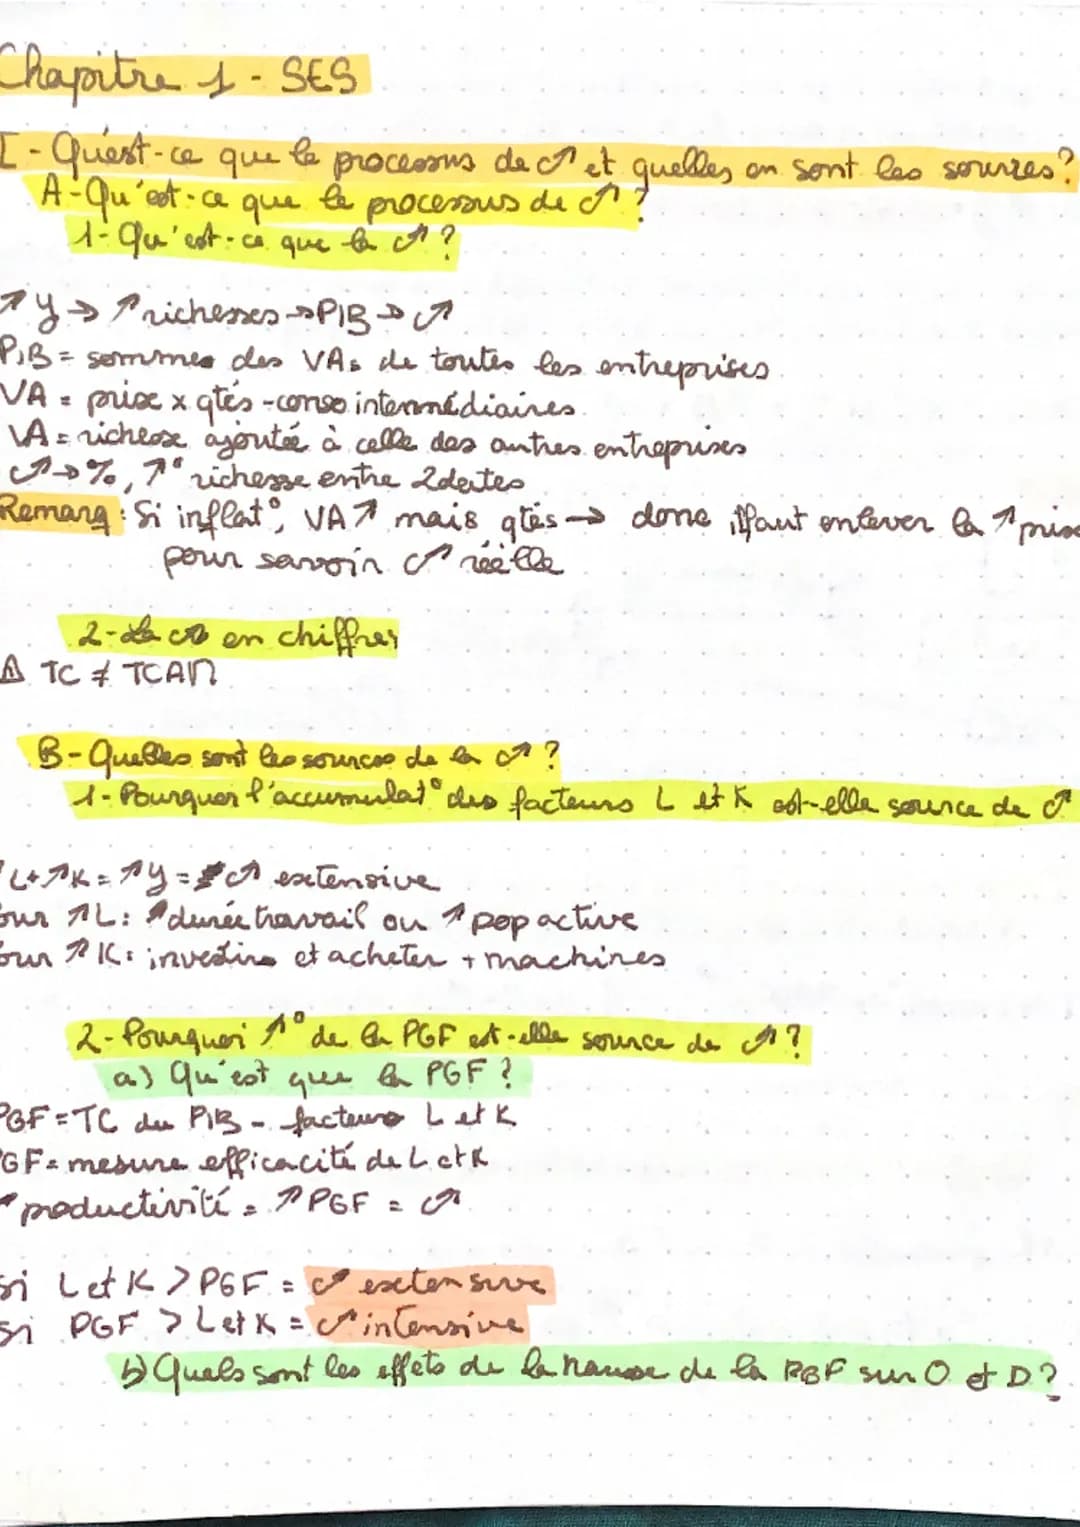 Chapitre 1 - SES
I - Qu'est-ce que le processus de c↗ et quelles en sont les sources?
A - Qu'est-ce que le processus de c↗ ?
1 - Qu'est-ce que la c↗ ?
↗ Y → ↗ richesses → PIB → c↗
PIB = sommes des VAs de toutes les entreprises
VA = prix x qtés - conso intermédiaires.
VA = richesse ajoutée à celle des autres entreprises
c↗ → %, ↗° richesse entre 2 dates
Remarq : Si inflat°, VA ↗ mais qtés → donc il faut enlever la ↗ prix
pour savoir c↗ réelle
2 - La c↗ en chiffres
⚠ TC ≠ TCAM
B - Quelles sont les sources de la c↗ ?
1 - Pourquoi l'accumulat° des facteurs L et K est-elle source de c↗
L + ↗K = ↗Y = c↗ extensive
our ↗L : ↗ durée travail ou ↗ pop active
our ↗ K : investir et acheter + machines
2 - Pourquoi ↗° de la PGF est-elle source de c↗ ?
a) Qu'est que la PGF ?
PGF = TC du PIB - facteurs L et K
PGF = mesure efficacité de L et K
↗ productivité = ↗ PGF = c↗
si L et K > PGF = c↗ extensive
si PGF > L et K = c↗ intensive
b) Quels sont les effets de la hausse de la PGF sur O et D ?